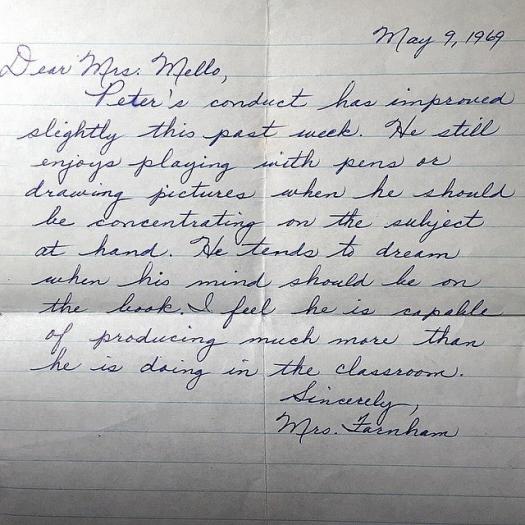 May 9, 1969
Dear Mrs. Mello,
Peter's conduct has improved
slightly this past week. He still
enjoys playing with pens or
drawing pictures when he should
be concentrating on the subject
at hand. He tends to dream
when his mind should be on
the book. I feel he is capable
of producing much more than
he is doing in the classroom.
Sincerely,
Mrs. Farnham